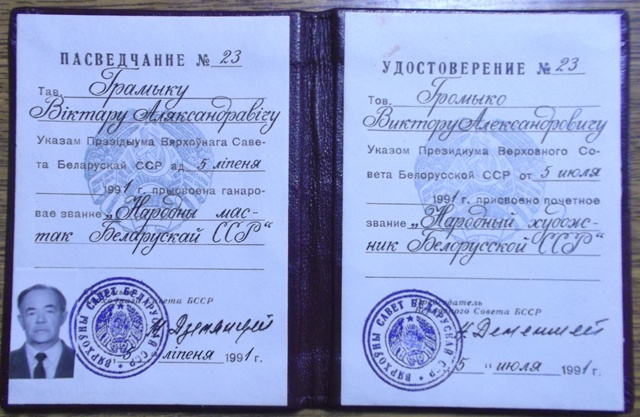 ПАСВЕДЧАННЕ № 23
Тав. Грамыку
Віктару Аляксандравічу
Указам Прэзідыума Вярхоўнага Саве-
та Беларускай ССР ад 5 ліпеня
1991 г. прысвоена ганаро-
вае званне „Народны мас-
так Беларускай ССР“
Вярхоўнага Савета БССР
ВЯРХОЎНЫ САВЕТ БЕЛАРУСКАЯ ССР
5 ліпеня 1991 г.
УДОСТОВЕРЕНИЕ № 23
Тов. Громыко
Виктору Александровичу
Указом Президиума Верховного Со-
вета Белорусской ССР от 5 июля
1991 г. присвоено почетное
звание „Народный худож-
ник Белорусской ССР“
Председатель
Верховного Совета БССР
ВЯРХОЎНЫ САВЕТ БЕЛАРУСКАЯ ССР
Н. Дементей
5 " июля 1991 г.